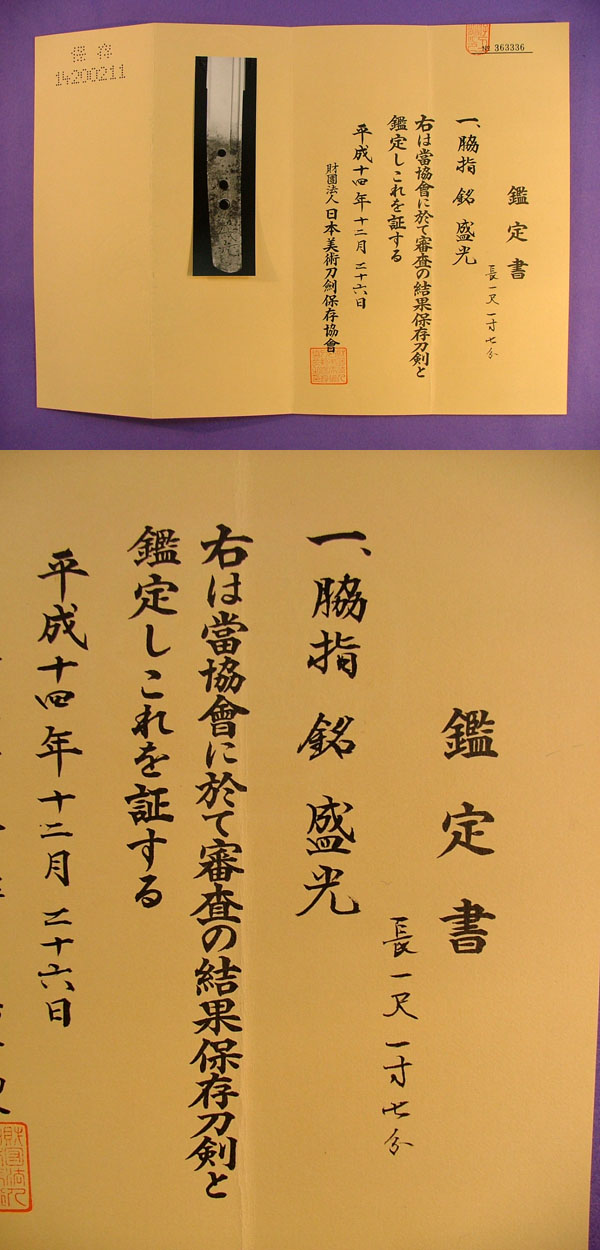 保存
14200211
No 363336
鑑定書
長一尺一寸七分
一、脇指 銘 盛光
右は當協會に於て審査の結果保存刀剣と
鑑定しこれを証する
平成十四年十二月二十六日
財團法人日本美術刀剣保存協會
鑑定書
長一尺一寸七分
一、脇指 銘 盛光
右は當協會に於て審査の結果保存刀剣と
鑑定しこれを証する
平成十四年十二月二十六日